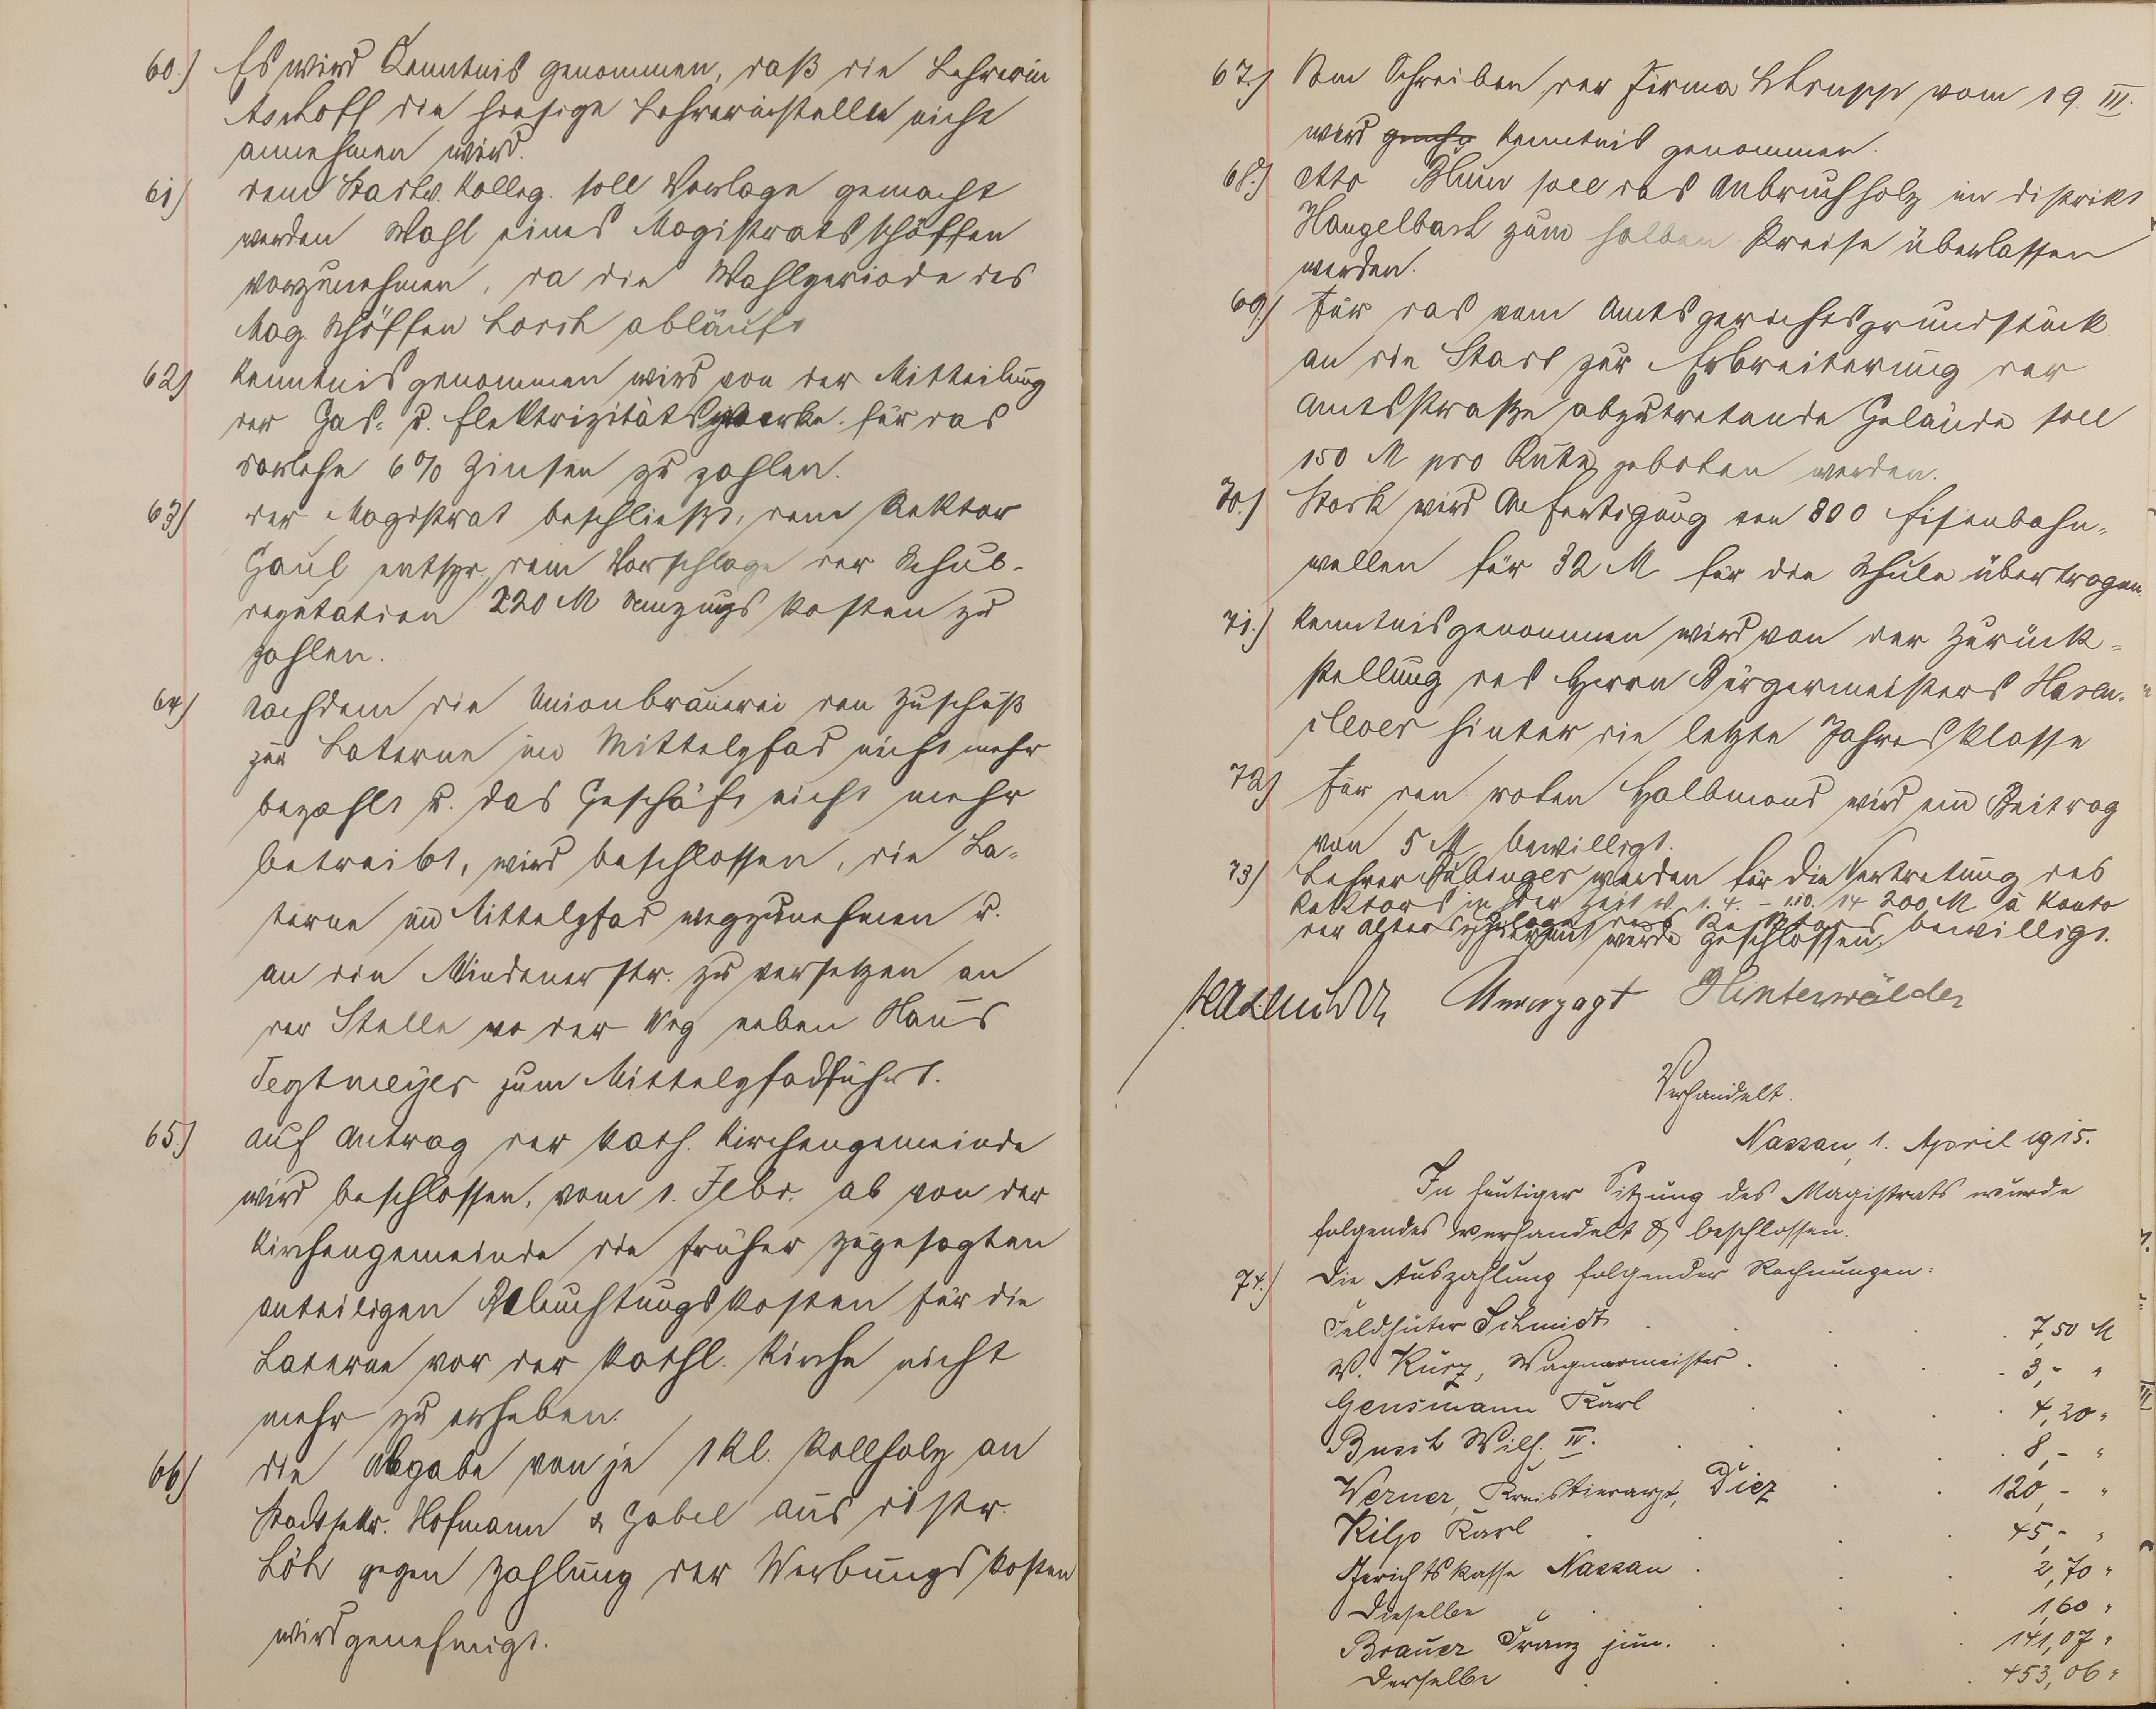 60.) Es wird Kenntnis genommen, daß die Lehrerin
Aschoff die hiesige Lehrerinstelle nicht
annehmen wird.
61) dem Stadtv. Kolleg. soll Vorlage gemacht
werden Wahl eines Magistratsschöffen
vorzunehmen, da die Wahlperiode des
Mag. Schöffen Lorch abläuft
62) Kenntnis genommen wird von der Mitteilung
der Gas- u. Elektrizitätswerke für das
Darlehe 6% Zinsen zu zahlen.
63) der Magistrat beschließt, dem Rektor
Gaul entspr. dem Vorschlage der Schul-
deputation 220 M Umzugskosten zu
zahlen.
64) Nachdem die Unionbrauerei den Zuschuß
zur Laterne im Mittelpfad nicht mehr
bezahlt u. das Geschäft nicht mehr
betreibt, wird beschlossen, die La-
terne im Mittelpfad wegzunehmen u.
an die Mindenerstr. zu versetzen an
der Stelle wo der Weg neben Haus
Tegtmeyer zum Mittelpfad führt.
65.) auf Antrag der kath. Kirchengemeinde
wird beschlossen, vom 1. Febr. ab von der
Kirchengemeinde die früher zugesagten
anteiligen Beleuchtungskosten für die
Laterne vor der kathl. Kirche nicht
mehr zu erheben.
66) die Abgabe von je 1 Kl. Rollholz an
Stadtsekr. Hofmann & Gabel aus distr.
Löh gegen Zahlung der Werbungskosten
wird genehmigt.
67.) Vom Schreiben der Firma Krupp vom 19. III.
wird Kenntnis genommen.
68.) Otto Blum soll das Anbruchholz im distrikt
Hangelbach zum halben Preise überlassen
werden.
69.) Für das vom Amtsgerichtsgrundstück
an die Stadt zur Erbreiterung der
Amtsstraße abzutretende Gelände soll
150 M pro Rute geboten werden.
70.) Stork wird Anfertigung von 800 Eisenbahn-
wellen für 32 M für die Schule übertragen.
71.) Kenntnis genommen wird von der Zurück-
stellung des Herrn Bürgermeisters Hasen-
clever hinter die letzte Jahresklasse
72) Für den roten Halbmond wird ein Beitrag
von 5 M bewilligt.
73) Lehrer Bubinger werden für die Vertretung des
Rektors in der Zeit v. 1.4. - 1.10. 14 200 M à Konto
der Alterszulage des Rektors bewilligt.
Hierauf wurde geschlossen.
Hasenclever Unverzagt Hinterwälder
Verhandelt.
Nassau, 1. April 1915.
In heutiger Sitzung des Magistrats wurde
folgendes verhandelt & beschlossen.
74.) Die Auszahlung folgender Rechnungen:
Feldhüter Schmidt 7,50 M
W. Kurz, Wagnermeister 3,- "
Gensmann Karl 4,20 "
Busch Wilh. IV. 8,- "
Werner, Kreistierarzt, Diez 120,- "
Kilp Karl 45,- "
Gerichtskasse Nassau 2,70 "
Dieselbe 1,60 "
Brauer Franz jun. 141,07 "
Derselbe 453,06 "